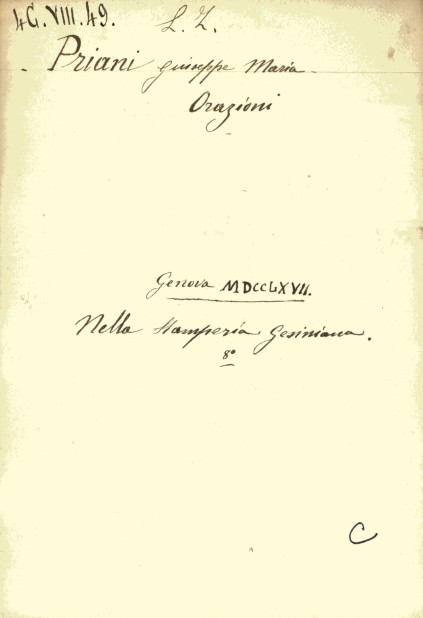 4G.VIII.49.
L. Z.
Priani Giuseppe Maria
Orazioni
Genova MDCCLXVII.
Nella Stamperia Gesiniana.
8°
C